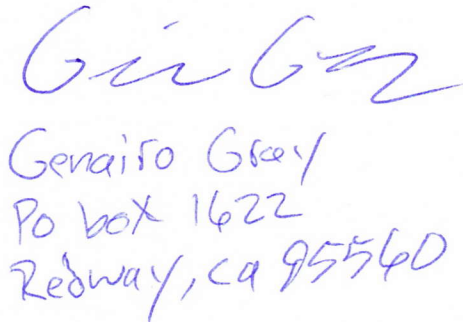 Genairo Gray
Po box 1622
Redway, ca 95560